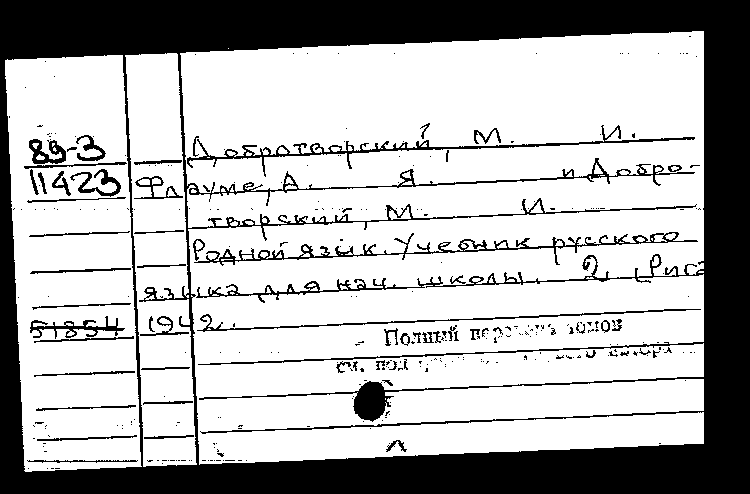 89-3 Добротворский, М. И.
11423 Флауме, А. Я. и Добро-
творский, М. И.
Родной язык. Учебник русского
языка для нач. школы. 2. [Рига
51854 1942.
Полный перечень томов
см. под